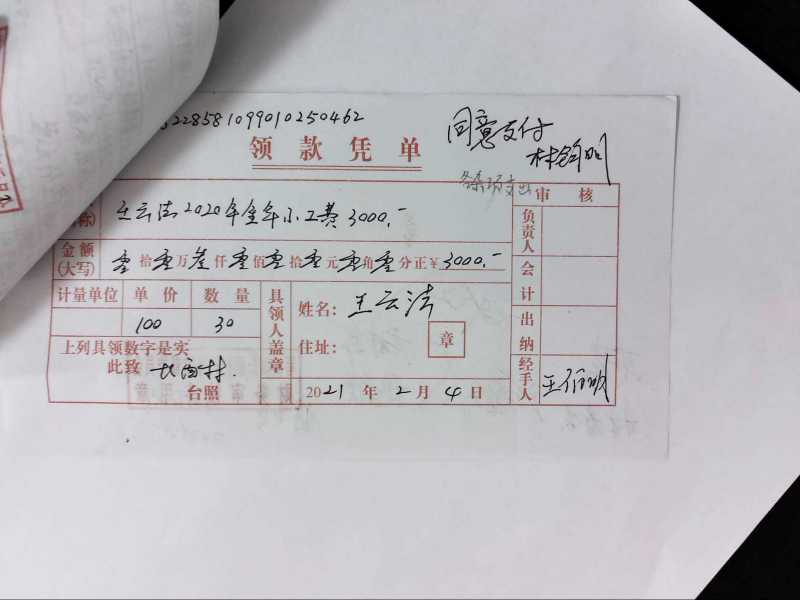 228581099010250462
同意支付
领款凭单
审核
王云法2020年全年小工费3000.-
负责人
金额(大写) 零拾零万叁仟零佰零拾零元零角零分正¥3000.-
会计
计量单位 单价 数量
具领人盖章
姓名：王云法
100 30
出纳
住址：
章
上列具领数字是实
此致
台照
2021年2月4日
经手人